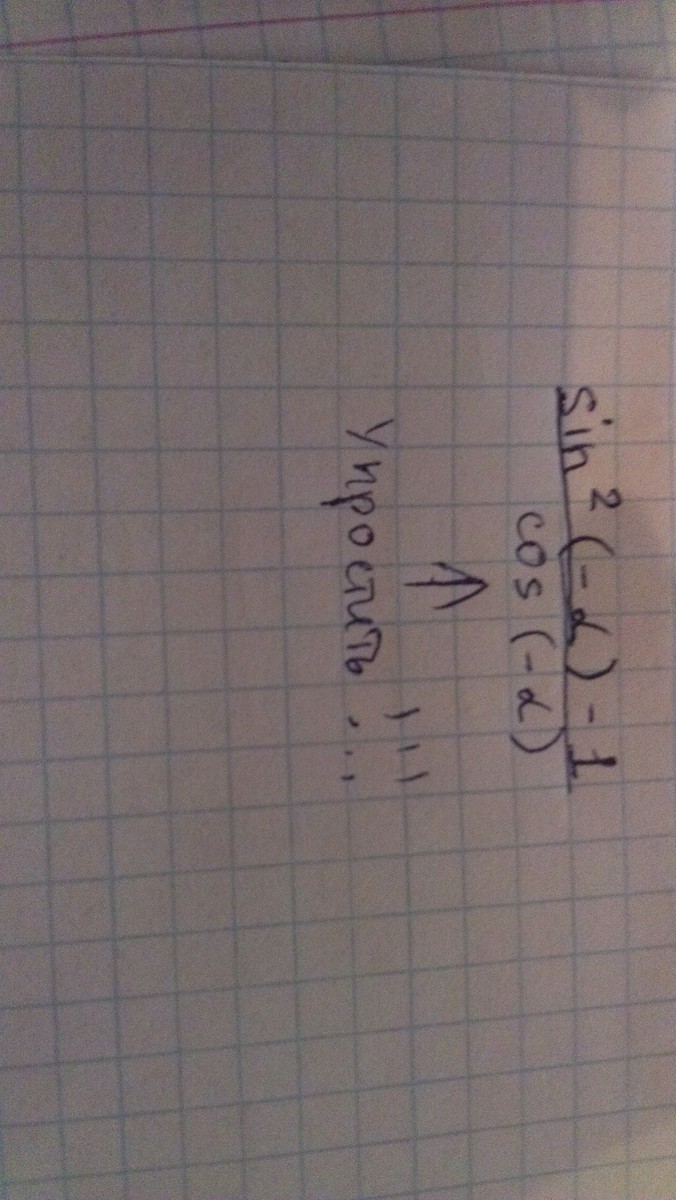 sin²(-α)-1
cos(-α)
↑
Упростить!!!